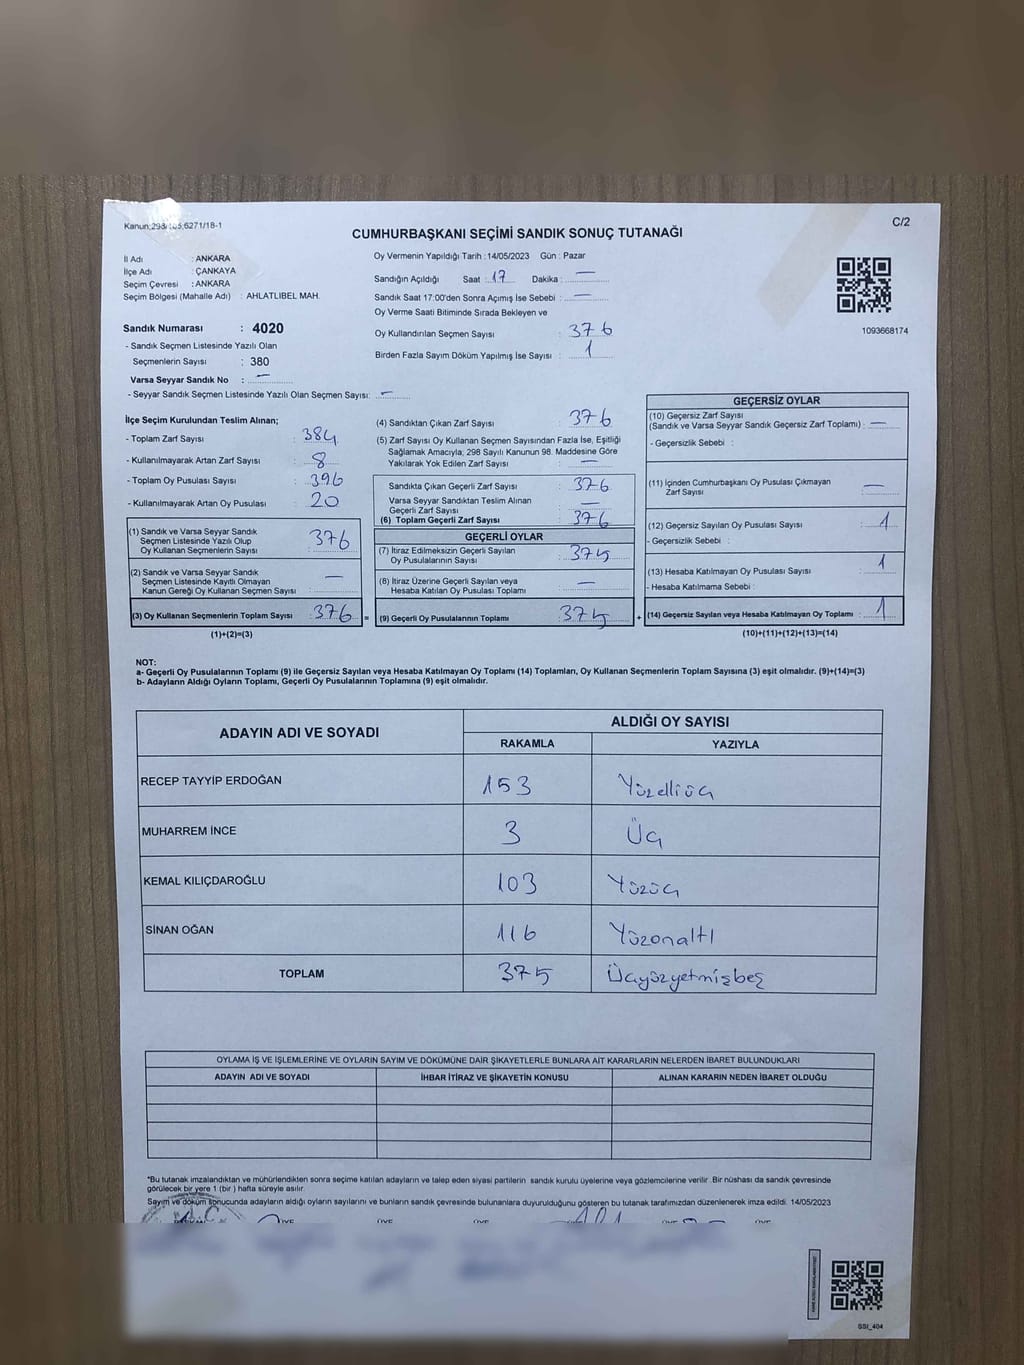 Kanun;298/105;6271/18-1
C/2
CUMHURBAŞKANI SEÇİMİ SANDIK SONUÇ TUTANAĞI
İl Adı : ANKARA
İlçe Adı : ÇANKAYA
Seçim Çevresi : ANKARA
Seçim Bölgesi (Mahalle Adı) : AHLATLIBEL MAH.
Sandık Numarası : 4020
- Sandık Seçmen Listesinde Yazılı Olan
Seçmenlerin Sayısı : 380
Varsa Seyyar Sandık No : —
- Seyyar Sandık Seçmen Listesinde Yazılı Olan Seçmen Sayısı: —
Oy Vermenin Yapıldığı Tarih : 14/05/2023 Gün : Pazar
Sandığın Açıldığı Saat : 17 Dakika : —
Sandık Saat 17:00'den Sonra Açımış İse Sebebi : —
Oy Verme Saati Bitiminde Sırada Bekleyen ve
Oy Kullandırılan Seçmen Sayısı : 376
Birden Fazla Sayım Döküm Yapılmış İse Sayısı : 1
1093668174
İlçe Seçim Kurulundan Teslim Alınan;
- Toplam Zarf Sayısı : 384
- Kullanılmayarak Artan Zarf Sayısı : 8
- Toplam Oy Pusulası Sayısı : 396
- Kullanılmayarak Artan Oy Pusulası : 20
(1) Sandık ve Varsa Seyyar Sandık
Seçmen Listesinde Yazılı Olup
Oy Kullanan Seçmenlerin Sayısı : 376
(2) Sandık ve Varsa Seyyar Sandık
Seçmen Listesinde Kayıtlı Olmayan
Kanun Gereği Oy Kullanan Seçmen Sayısı : —
(3) Oy Kullanan Seçmenlerin Toplam Sayısı : 376 =
(1)+(2)=(3)
(4) Sandıktan Çıkan Zarf Sayısı : 376
(5) Zarf Sayısı Oy Kullanan Seçmen Sayısından Fazla İse, Eşitliği
Sağlamak Amacıyla; 298 Sayılı Kanunun 98. Maddesine Göre
Yakılarak Yok Edilen Zarf Sayısı : —
Sandıkta Çıkan Geçerli Zarf Sayısı : 376
Varsa Seyyar Sandıktan Teslim Alınan
Geçerli Zarf Sayısı : —
(6) Toplam Geçerli Zarf Sayısı : 376
GEÇERLİ OYLAR
(7) İtiraz Edilmeksizin Geçerli Sayılan
Oy Pusulalarının Sayısı : 375
(8) İtiraz Üzerine Geçerli Sayılan veya
Hesaba Katılan Oy Pusulası Toplamı : —
(9) Geçerli Oy Pusulalarının Toplamı : 375 +
GEÇERSİZ OYLAR
(10) Geçersiz Zarf Sayısı
(Sandık ve Varsa Seyyar Sandık Geçersiz Zarf Toplamı) : —
- Geçersizlik Sebebi :
(11) İçinden Cumhurbaşkanı Oy Pusulası Çıkmayan
Zarf Sayısı : —
(12) Geçersiz Sayılan Oy Pusulası Sayısı : 1
- Geçersizlik Sebebi :
(13) Hesaba Katılmayan Oy Pusulası Sayısı : 1
- Hesaba Katılmama Sebebi :
(14) Geçersiz Sayılan veya Hesaba Katılmayan Oy Toplamı : 1
(10)+(11)+(12)+(13)=(14)
NOT:
a- Geçerli Oy Pusulalarının Toplamı (9) ile Geçersiz Sayılan veya Hesaba Katılmayan Oy Toplamı (14) Toplamları, Oy Kullanan Seçmenlerin Toplam Sayısına (3) eşit olmalıdır. (9)+(14)=(3)
b- Adayların Aldığı Oyların Toplamı, Geçerli Oy Pusulalarının Toplamına (9) eşit olmalıdır.
ADAYIN ADI VE SOYADI ALDIĞI OY SAYISI
RAKAMLA YAZIYLA
RECEP TAYYİP ERDOĞAN 153 Yüzelliüç
MUHARREM İNCE 3 Üç
KEMAL KILIÇDAROĞLU 103 Yüzüç
SİNAN OĞAN 116 Yüzonaltı
TOPLAM 375 Üçyüzyetmişbeş
OYLAMA İŞ VE İŞLEMLERİNE VE OYLARIN SAYIM VE DÖKÜMÜNE DAİR ŞİKAYETLERLE BUNLARA AİT KARARLARIN NELERDEN İBARET BULUNDUKLARI
ADAYIN ADI VE SOYADI İHBAR İTİRAZ VE ŞİKAYETİN KONUSU ALINAN KARARIN NEDEN İBARET OLDUĞU
*Bu tutanak imzalandıktan ve mühürlendikten sonra seçime katılan adayların ve talep eden siyasi partilerin sandık kurulu üyelerine veya gözlemcilerine verilir .Bir nüshası da sandık çevresinde
görülecek bir yere 1 (bir ) hafta süreyle asılır.
Sayım ve döküm sonucunda adayların aldığı oyların sayılarını ve bunların sandık çevresinde bulunanlara duyurulduğunu gösteren bu tutanak tarafımızdan düzenlenerek imza edildi. 14/05/2023
SSI_404